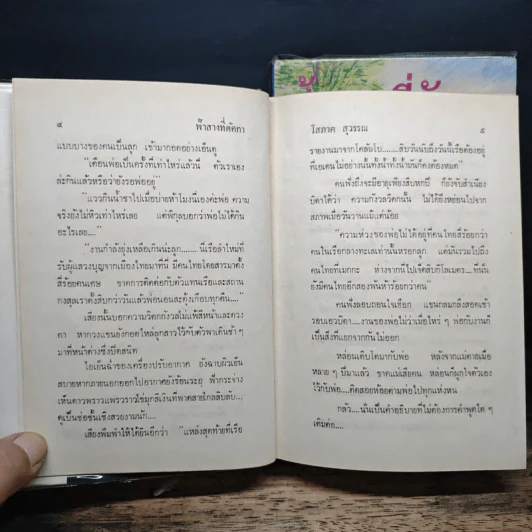 ๔ ฟ้าสางที่ดัคกา
แบบบางของคนเป็นลูก เข้ามากอดอย่างเอ็นดู
"เตือนพ่อเป็นครั้งที่เท่าไหร่แล้วนี่ ตัวเราเอง
ล่ะกินแล้วหรือว่ายังรอพ่ออยู่"
"แววกินน้ำชาไปเมื่อบ่ายห้าโมงนี่เองค่ะพ่อ ความ
จริงยังไม่หิวเท่าไหร่เลย แต่พี่กุลบอกว่าพ่อไม่ได้กิน
อะไรเลย...."
"งานกำลังยุ่งเหลือเกินน่ะลูก....... นี่เรือลำใหม่ที่
รับผู้แสวงบุญจากเมืองไทยมาที่นี่ มีคนไทยโดยสารมาตั้ง
สี่ร้อยคนเศษ ขาดการติดต่อกับตัวแทนเรือและสถาน
กงสุลเราตั้งสิบกว่าวันแล้วพ่อนอนสะดุ้งเกือบทุกคืน...."
เสียงนั้นบอกความวิตกกังวลไม่แพ้สีหน้าและดวง
ตา หากวงแขนยังกอดไหล่ลูกสาวไว้กับตัวพาเดินช้า ๆ
มาที่หน้าต่างซึ่งปิดสนิท
ไอเย็นฉ่ำของเครื่องปรับอากาศ ยังฉาบผิวเย็น
สบายหากภายนอกออกไปอากาศยังร้อนระอุ ฟ้ากระจ่าง
เห็นดาวพราวแพรวราวไข่มุกสีเงินที่พาดสายใกล้ลิบลับ...
ดูเป็นช่อชั้นเชิงสวยงามนัก....
เสียงพึมพำให้ได้ยินอีกว่า "แหล่งสุดท้ายที่เรือ
โสภาค สุวรรณ ๕
รายงานมาจากโคลัมโบ....... สิบวันนับถึงวันนี้เรือต้องอยู่
คนฟังถึงจะมีอายุเพียงสิบหกปี ก็ยังจับสำเนียง
บิดาได้ว่า ความกังวลวิตกนั้น ไม่ได้ยิ่งหย่อนไปจาก
สภาพเมื่อวันวานแม้แต่น้อย
"ความห่วงของพ่อไม่ได้อยู่ที่คนไทยสี่ร้อยกว่า
คนในเรือกลางทะเลเท่านั้นหรอกลูก แต่มันรวมไปถึง
คนไทยที่เมกกะ ห่างจากนี่ไปเจ็ดสิบกิโลเมตร.... ที่นั่น
ยังมีคนไทยอีกสองพันห้าร้อยกว่าคน"
คนฟังลอบถอนใจเฮือก แขนกลมกลึงสอดเข้า
รอบเอวบิดา..... งานของพ่อไม่ว่าเมื่อไหร่ ๆ พอกับงานก็
เป็นสิ่งที่แยกจากกันไม่ออก
หล่อนเติบโตมากับพ่อ หลังจากแม่ตายเมื่อ
หลาย ๆ ปีมาแล้ว ขาดแม่เสียคน หล่อนก็ผูกใจตัวเอง
ไว้กับพ่อ.... ติดสอยห้อยตามพ่อไปทุกแห่งหน
กลัว.... นั่นเป็นคำอธิบายที่ไม่ต้องการคำพูดใด ๆ
เติมต่อ....